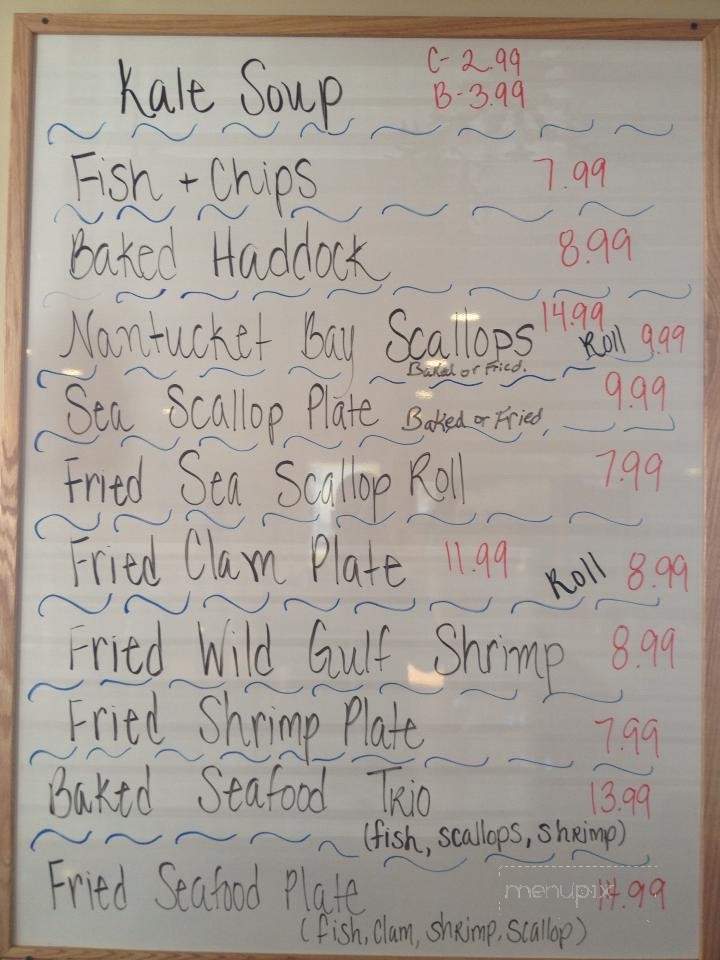 Kale Soup C- 2.99
B-3.99
Fish + Chips 7.99
Baked Haddock 8.99
Nantucket Bay Scallops 14.99 Roll 9.99
Baked or Fried.
Sea Scallop Plate Baked or Fried 9.99
Fried Sea Scallop Roll 7.99
Fried Clam Plate 11.99 Roll 8.99
Fried Wild Gulf Shrimp 8.99
Fried Shrimp Plate 7.99
Baked Seafood Trio 13.99
(fish, scallops, shrimp)
Fried Seafood Plate 14.99
(fish, clam, shrimp, scallop)
menupix